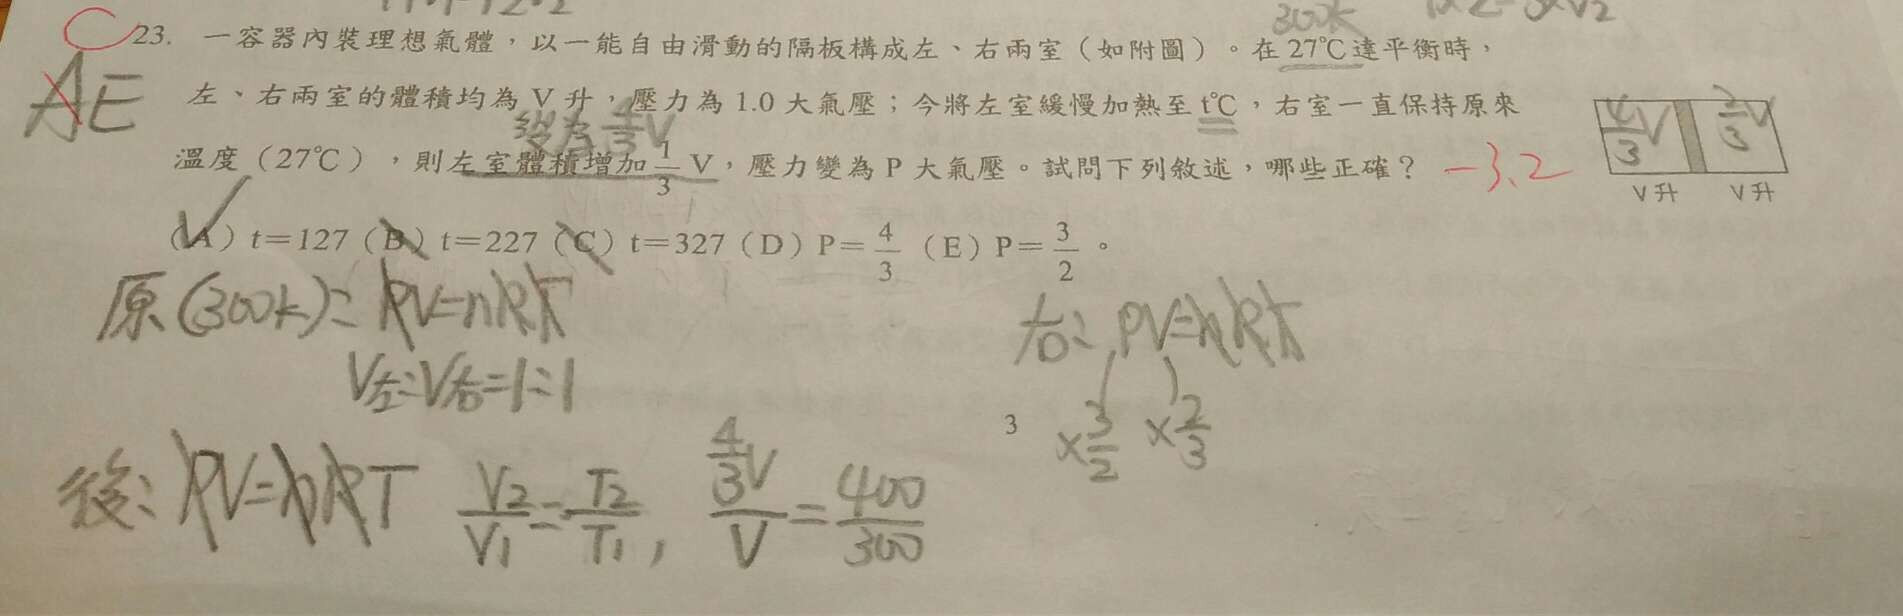 300k
C 23. 一容器內裝理想氣體，以一能自由滑動的隔板構成左、右兩室（如附圖）。在27℃達平衡時，
AE 左、右兩室的體積均為 V 升，壓力為 1.0 大氣壓；今將左室緩慢加熱至 t℃，右室一直保持原來
變為 4/3 V
4/3 V 2/3 V
溫度（27℃），則左室體積增加 1/3 V，壓力變為 P 大氣壓。試問下列敘述，哪些正確？ -3.2
V 升 V 升
(A) t=127 (B) t=227 (C) t=327 (D) P=4/3 (E) P=3/2。
原(300k): PV=nRT
V左:V右=1:1
右: PV=nRT
×3/2 ×2/3
3
後: PV=nRT V2/V1=T2/T1, 4/3V/V=400/300